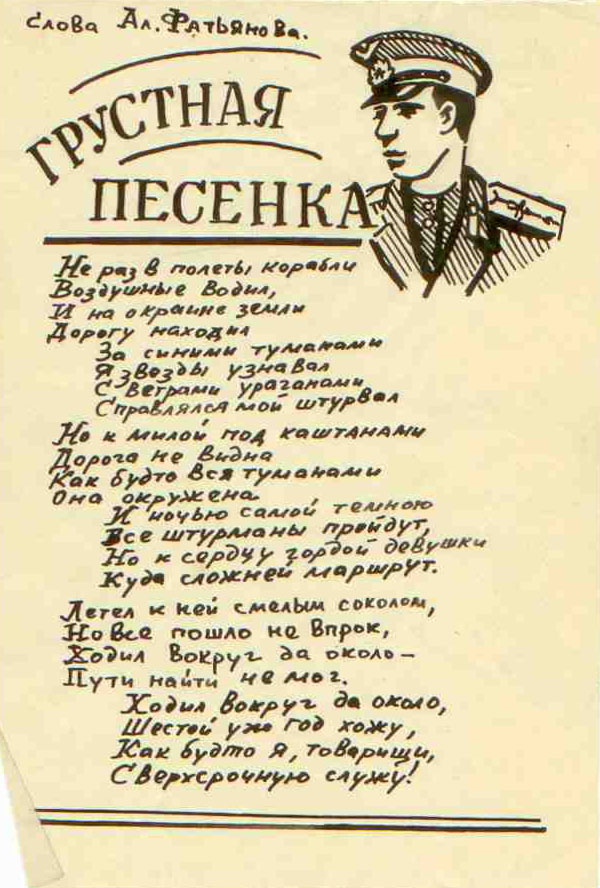 слова Ал. Фатьянова.
ГРУСТНАЯ
ПЕСЕНКА
Не раз в полеты корабли
Воздушные водил,
И на окраине земли
Дорогу находил
За синими туманами
Я звезды узнавал
С ветрами ураганами
Справлялся мой штурвал
Но к милой под каштанами
Дорога не видна
Как будто вся туманами
Она окружена
И ночью самой темною
Все штурманы пройдут,
Но к сердцу гордой девушки
Куда сложней маршрут.
Летел к ней смелым соколом,
Но все пошло не впрок,
Ходил вокруг да около —
Пути найти не мог.
Ходил вокруг да около,
Шестой уж год хожу,
Как будто я, товарищи,
Сверхсрочную служу!